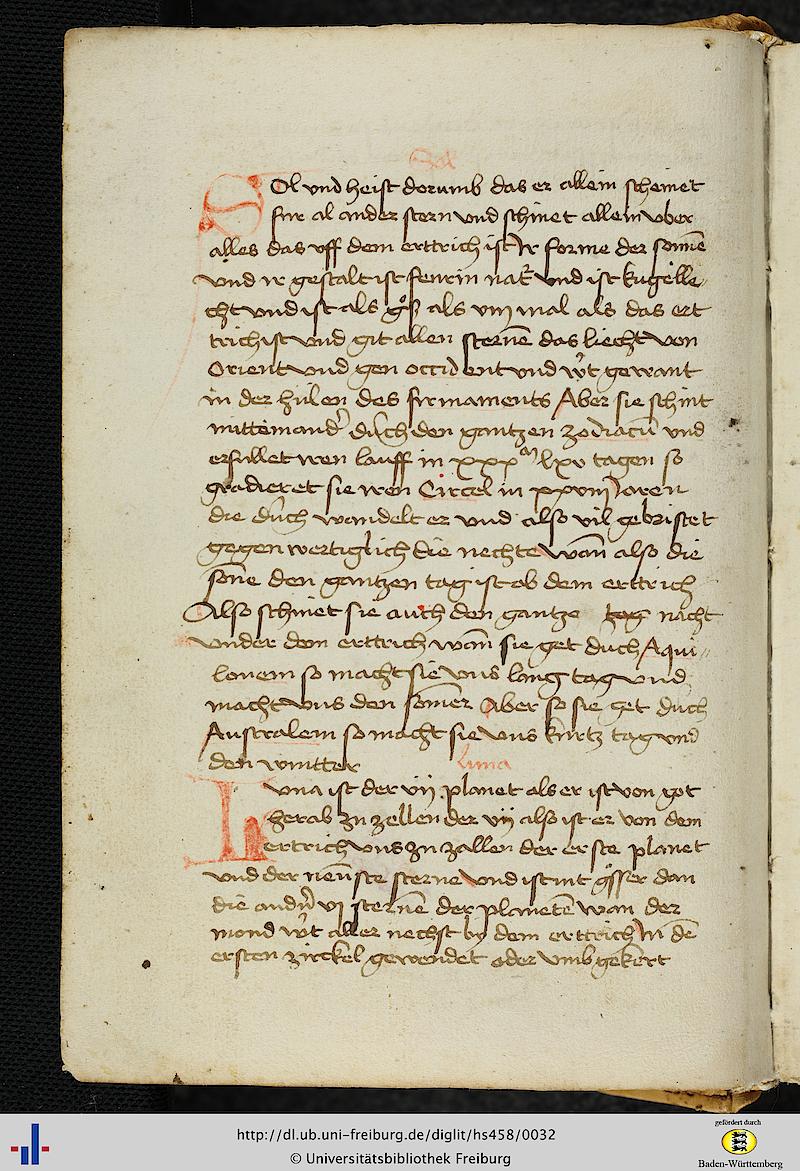 Sol
SOl vnd heist dorumb das er allein scheinet
fur al ander stern vnd schinet allein vber
alles das vff dem erttrich ist Ir forme der sonnē
vnd ir gestalt ist feurin nat vnd ist kugelle„
cht vnd ist als gͦß als viij mal als das ert
trich ist vnd git allen sternē das liecht von
Orient vnd gen occident vnd wͤt gewant
in der hulen des firmaments Aber sie schint
mitteinand' duͤch den gantzen zodiacū vnd
erfullet iren lauff in lxv tagen so
gradieret sie iren Circel in xxviij Joren
die duͤch wandelt er vnd also vil gebristet
gegenwertiglich die nechte wan̄ also die
son̄e den gantzen tag ist ob dem erttrich
Also schinet sie auch den gantze tag nacht
vnder dem erttrich wan̄ sie get duch Aqui„
lonem so macht sie vns lang tag vnd
macht vns den som̄er Aber so sie get duch
Australem so macht sie vns kurtz tag vnd
den wintter
Luna
Lvna ist der vij planet als er ist von got
herab zu zellen der vij also ist er von dem
ertrich vns zu zallen der erste planet
vnd der neun̄ste sterne vnd ist nit gͦsser dan
die andn̄ vj sternē der planetē wan der
mond wͤt aller nechst by dem erttrich in dē
ersten zirckel gewendet oder vmbgekert
http://dl.ub.uni-freiburg.de/diglit/hs458/0032
© Universitätsbibliothek Freiburg
gefördert durch
Baden-Württemberg